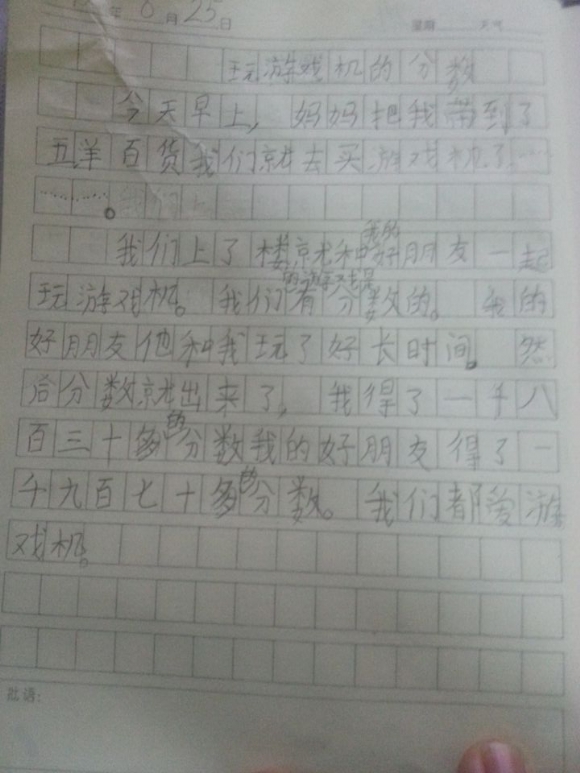 年 6月25日
玩游戏机的分数
今天早上，妈妈把我带到了
五羊百货我们就去买游戏机了……
……。
我们上了楼就和我的好朋友一起
玩游戏机。我们的游戏是有分数的。我的
好朋友他和我玩了好长时间。然
后分数就出来了，我得了一千八
百三十多的分数我的好朋友得了一
千九百七十多的分数。我们都爱游
戏机。
批语：